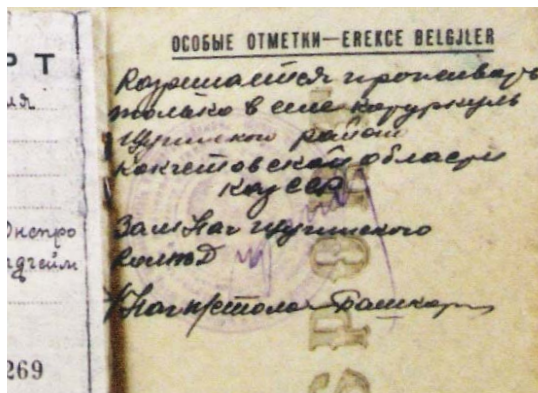 РТ
ОСОБЫЕ ОТМЕТКИ—EREKCE BELGJLER
Разрешается проживать
только в селе Котуркуль
Щучинского района
Кокчетовской области
Каз ССР
Зам Нач Щучинского
Нач п/стола
Днепро
269